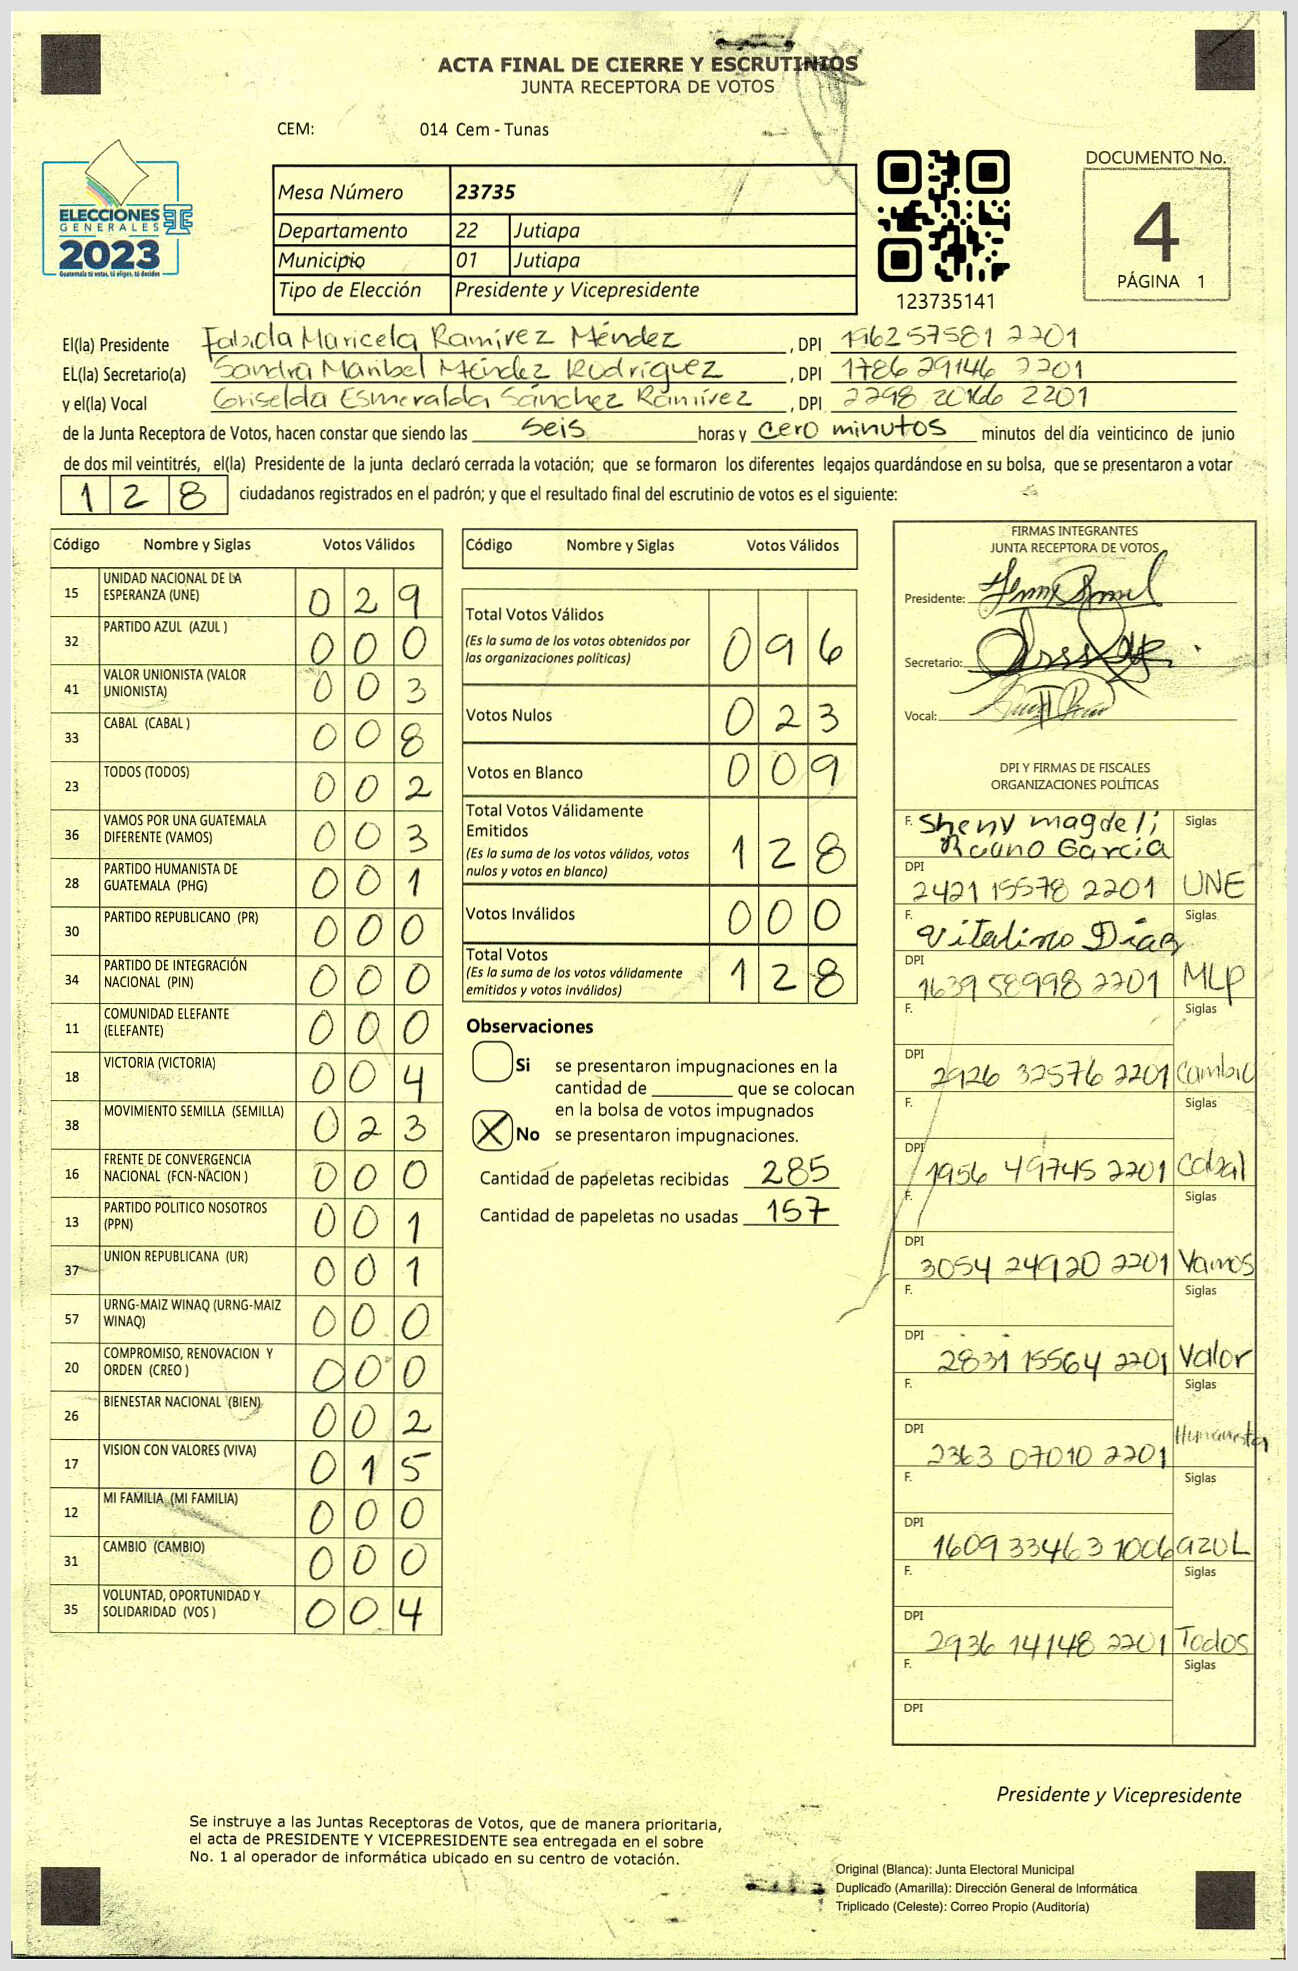 ACTA FINAL DE CIERRE Y ESCRUTINIOS
JUNTA RECEPTORA DE VOTOS
CEM: 014 Cem - Tunas
ELECCIONES
GENERALES
2023
Guatemala tú votas, tú eliges, tú decides
Mesa Número 23735
Departamento 22 Jutiapa
Municipio 01 Jutiapa
Tipo de Elección Presidente y Vicepresidente
123735141
DOCUMENTO No.
4
PÁGINA 1
El(la) Presidente Fabida Maricela Ramírez Méndez, DPI 196257581 2201
EL(la) Secretario(a) Sandra Maribel Méndez Rodríguez, DPI 1786 29146 2201
y el(la) Vocal Griselda Esmeralda Sánchez Ramírez, DPI 2298 20166 2201
de la Junta Receptora de Votos, hacen constar que siendo las seis horas y cero minutos minutos del día veinticinco de junio
de dos mil veintitrés, el(la) Presidente de la junta declaró cerrada la votación; que se formaron los diferentes legajos guardándose en su bolsa, que se presentaron a votar
128 ciudadanos registrados en el padrón; y que el resultado final del escrutinio de votos es el siguiente:
Código Nombre y Siglas Votos Válidos
15 UNIDAD NACIONAL DE LA ESPERANZA (UNE) 029
32 PARTIDO AZUL (AZUL ) 000
41 VALOR UNIONISTA (VALOR UNIONISTA) 003
33 CABAL (CABAL ) 008
23 TODOS (TODOS) 002
36 VAMOS POR UNA GUATEMALA DIFERENTE (VAMOS) 003
28 PARTIDO HUMANISTA DE GUATEMALA (PHG) 001
30 PARTIDO REPUBLICANO (PR) 000
34 PARTIDO DE INTEGRACIÓN NACIONAL (PIN) 000
11 COMUNIDAD ELEFANTE (ELEFANTE) 000
18 VICTORIA (VICTORIA) 004
38 MOVIMIENTO SEMILLA (SEMILLA) 023
16 FRENTE DE CONVERGENCIA NACIONAL (FCN-NACION ) 000
13 PARTIDO POLITICO NOSOTROS (PPN) 001
37 UNION REPUBLICANA (UR) 001
57 URNG-MAIZ WINAQ (URNG-MAIZ WINAQ) 000
20 COMPROMISO, RENOVACION Y ORDEN (CREO ) 000
26 BIENESTAR NACIONAL (BIEN) 002
17 VISION CON VALORES (VIVA) 015
12 MI FAMILIA (MI FAMILIA) 000
31 CAMBIO (CAMBIO) 000
35 VOLUNTAD, OPORTUNIDAD Y SOLIDARIDAD (VOS ) 004
Código Nombre y Siglas Votos Válidos
Total Votos Válidos 096
(Es la suma de los votos obtenidos por
las organizaciones políticas)
Votos Nulos 023
Votos en Blanco 009
Total Votos Válidamente
Emitidos 128
(Es la suma de los votos válidos, votos
nulos y votos en blanco)
Votos Inválidos 000
Total Votos 128
(Es la suma de los votos válidamente
emitidos y votos inválidos)
Observaciones
Si se presentaron impugnaciones en la
cantidad de ________ que se colocan
en la bolsa de votos impugnados
X No se presentaron impugnaciones.
Cantidad de papeletas recibidas 285
Cantidad de papeletas no usadas 157
FIRMAS INTEGRANTES
JUNTA RECEPTORA DE VOTOS
Presidente:
Secretario:
Vocal:
DPI Y FIRMAS DE FISCALES
ORGANIZACIONES POLÍTICAS
F. Sheny magdeli Siglas
Ruano García
DPI 2421 15578 2201 UNE
F. Vitalino Díaz Siglas
DPI 1639 58998 2201 MLP
F. Siglas
DPI 2926 32576 2201 Cambio
F. Siglas
DPI 1956 49745 2201 Cabal
F. Siglas
DPI 3054 24920 2201 Vamos
F. Siglas
DPI 2831 15564 2201 Valor
F. Siglas
DPI 2363 07010 2201 Humanista
F. Siglas
DPI 1609 33463 1006 azuL
F. Siglas
DPI 2936 14148 2201 Todos
F. Siglas
DPI
Presidente y Vicepresidente
Se instruye a las Juntas Receptoras de Votos, que de manera prioritaria,
el acta de PRESIDENTE Y VICEPRESIDENTE sea entregada en el sobre
No. 1 al operador de informática ubicado en su centro de votación.
Original (Blanca): Junta Electoral Municipal
Duplicado (Amarilla): Dirección General de Informática
Triplicado (Celeste): Correo Propio (Auditoría)